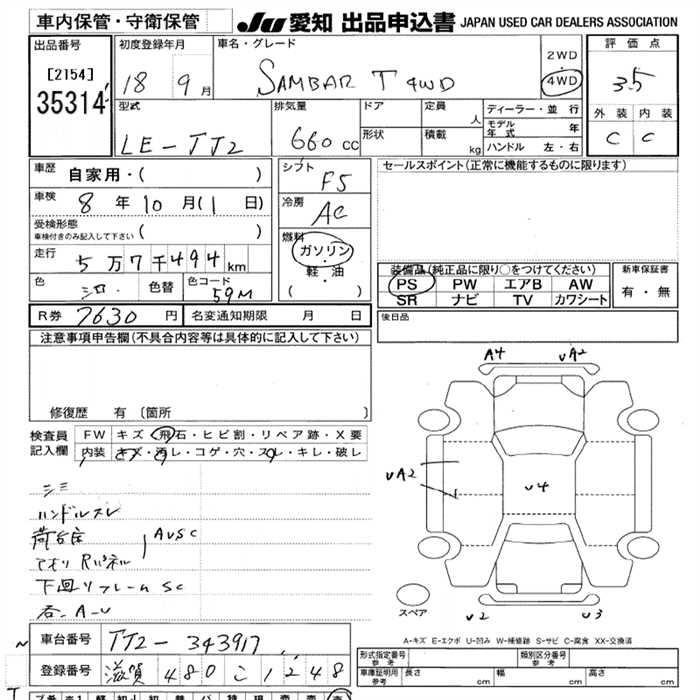 車内保管・守衛保管
JU 愛知 出品申込書 JAPAN USED CAR DEALERS ASSOCIATION
出品番号
[2154]
35314
初度登録年月
18 9月
車名・グレード
SAMBAR T 4WD
2WD
・
4WD
評価点
3.5
外装 内装
C C
型式
LE-TT2
排気量
660 cc
ドア
形状
定員
人
積載
kg
ディーラー・並行
モデル年式 年
ハンドル 左・右
車歴
自家用・( )
車検
8年10月(1日)
受検形態
車検付きのみ記入して下さい ( )
走行
5万7千494km
色
シロ
色替
色コード
59M
シフト
F5
冷房
AC
燃料
ガソリン
・
軽・油
( )
セールスポイント(正常に機能するものに限ります)
装備品(純正品に限り○をつけてください)
PS PW エアB AW
SR ナビ TV カワシート
新車保証書
有・無
R券 7630円
名変通知期限 月 日
後日品
注意事項申告欄(不具合内容等は具体的に記入して下さい)
修復歴 有 〔箇所 〕
検査員
記入欄
FW キズ・飛石・ヒビ割・リペア跡・X要
内装 キズ・汚レ・コゲ・穴・スレ・キレ・破レ
シミ
ハンドルスレ
荷台床
アオリ Rパネル
AUSC
下回リフレーム SC
A-U
A4
UA2
UA2
U4
U2
U3
スペア
A-キズ E-エクボ U-凹み W-補修跡 S-サビ C-腐食 XX-交換済
車台番号
TT2-343917
登録番号
滋賀 480 こ 1248
形式指定番号
参考
類別区分番号
参考
車庫証明用
参考
長さ cm
幅 cm
高さ cm